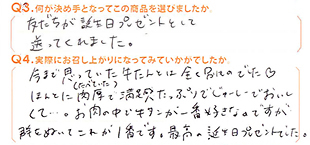 Q3.何が決め手となってこの商品を選びましたか。
友だちが誕生日プレゼントとして
送ってくれました。
Q4.実際にお召し上がりになってみていかがでしたか。
今まで思っていた牛たんとは全く別ものでした♡
(たべていた)
ほんとに肉厚で満足感たっぷりでジューシーでおいし
くて…。お肉の中で牛タンが一番好きなのですが
群をぬいてこれが1番です。最高の誕生日プレゼントでした。